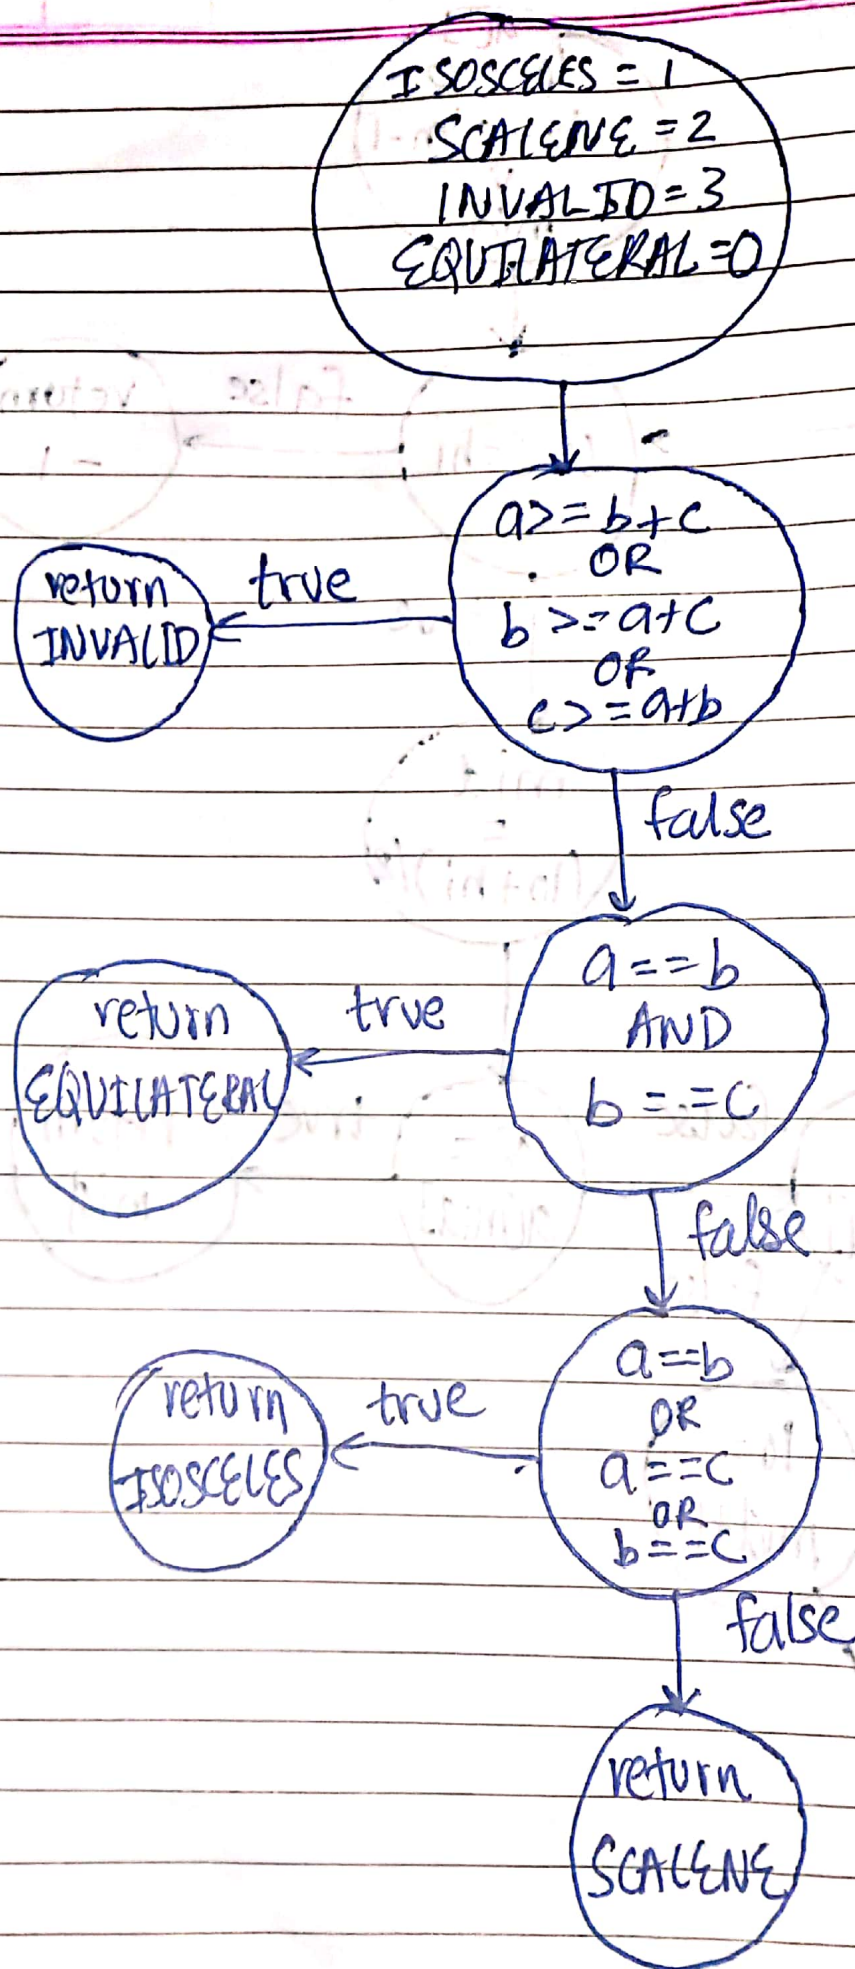 ISOSCELES = 1
SCALENE = 2
INVALID = 3
EQUILATERAL = 0
a>=b+c
OR
b>=a+c
OR
c>=a+b
true
return
INVALID
false
a==b
AND
b==c
true
return
EQUILATERAL
false
a==b
OR
a==c
OR
b==c
true
return
ISOSCELES
false
return
SCALENE